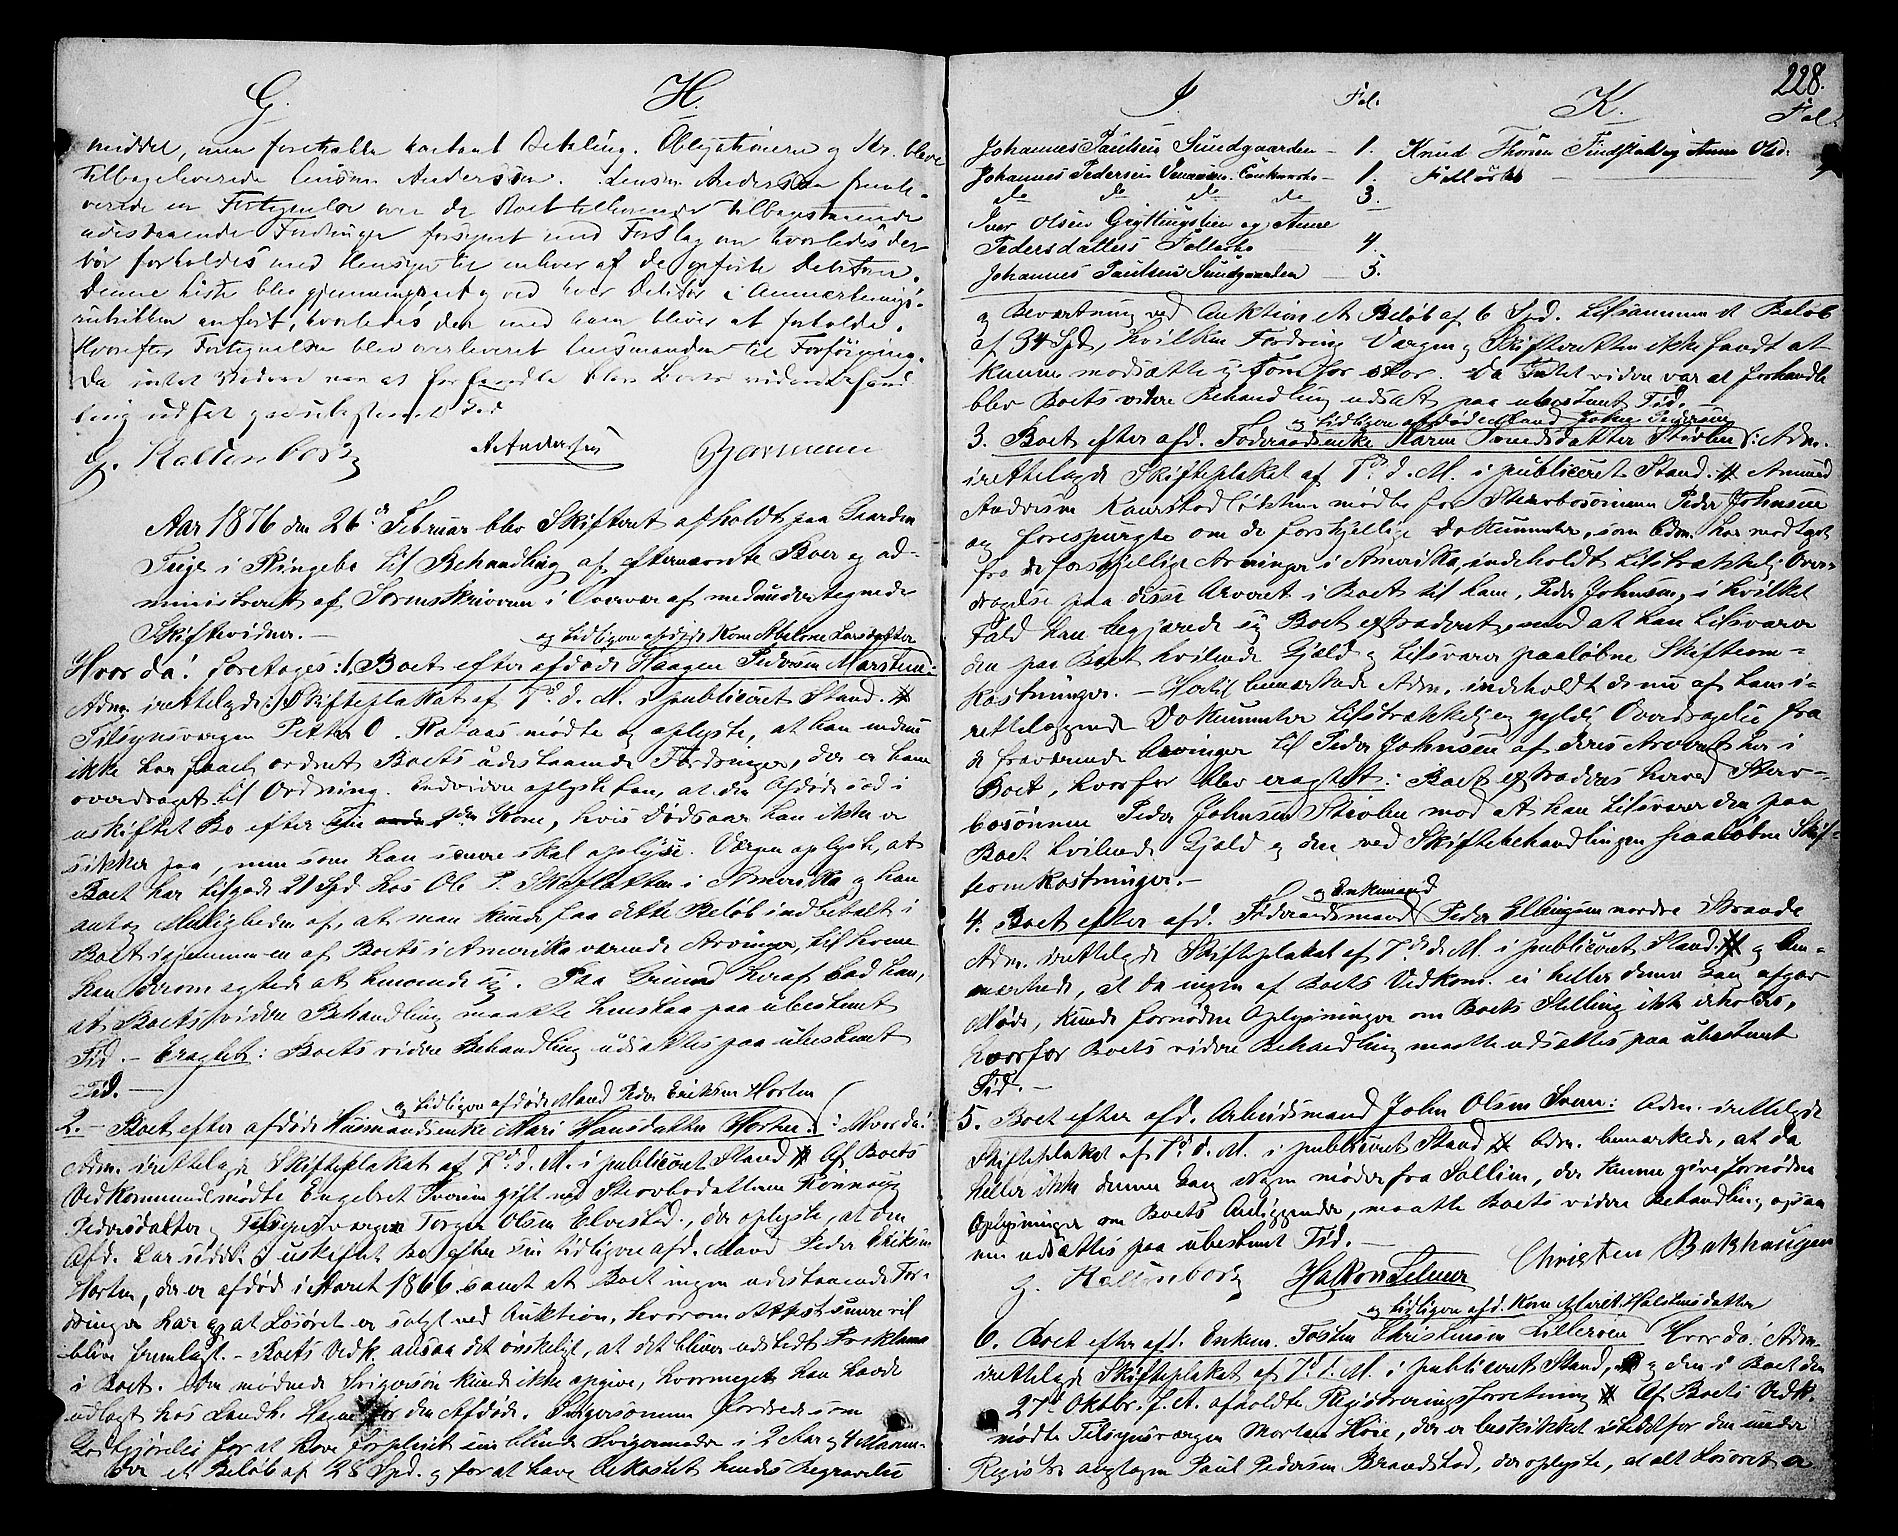 G. H.
middel, men foretrække kontant Betaling. Obligationerne
Tilbageleverede Lensm. Andersen. Lensm. Andersen
verede en Fortegnelse over de Boet tilhørende tilbagestaaende
udestaaende Fordringer forsynet med Forslag om hvorledes der
bør forholdes med Hensyn til enhver af de opførte Debitorer.
Denne Liste blev gjennemgaaet og ved hver Debitor i Anmærknings-
rubrikken anført, hvorledes der med ham bliver at forholde.
Hvorefter Fortegnelsen blev overleveret Lensmanden til Forføining.
Da intet videre var at forhandle blev Boets videre Behand
ling udsat paa ubestemt Tid
G. Kaltenborg A. Andersen Bjørmann
Aar 1876 den 26de Februar blev Skifteret afholdt paa Gaarden
Trige i Ringebo til Behandling af efternævnte Boer og ad-
ministreret af Sorenskriveren i Overvær af medundertegnede
Skiftevidner. –
og tidligere afdøde Kone Malene Larsdatter
Hvor da: foretoges: 1, Boet efter afdøde Haagen Pedersen Marstein:
Adm. irettelagde Skifteplakat af 7de d. M. i publiceret Stand. #
Tilsynsværgen Petter O. mødte og oplyste, at han endnu
ikke har faaet ordnet Boets udestaaende Fordringer, der er ham
overdraget til Ordning. Endvidere oplyste han, at den Afdøde sad i
uskiftet Bo efter sin Kone, hvis Dødsaar han ikke er
sikker paa, men som han senere skal oplyse. Værgen oplyste, at
Boet har tilgode 21 Spd hos Ole P. i Amerika og han
antog Muligheden af, at man kunde faa dette Beløb indbetalt i
Boet igjennem en af Boets i Amerika værende Arvinger, til hvem
han derom agtede at henvende sig. Paa Grund heraf bad han,
at Boets videre Behandling maatte henstaa paa ubestemt
Tid. – Eragtet: Boets videre Behandling udsættes paa ubestemt
Tid. –
og tidligere afdøde Mand Peder Eriksen Horten
2. – Boet efter afdøde Husmandsenke Mari Hansdatter Horten: Hvor da:
Adm. irettelagde Skifteplakat af 7de d. M. i publiceret Stand # Af Boets
Vedkommende mødte Engebret Iversen gift med Stervbodatteren Rønnaug
Pedersdatter og Tilsynsværgen Torger Olsen Elvestad, der oplyste, at den
Afd. har siddet i uskiftet Bo efter sin tidligere afd. Mand Peder Eriksen
Horten, der er afdød i Aaret 1866 samt at Boet ingen udestaaende For-
dringer har og at Løsøret er solgt ved Auktion, hvorom Attest senere vil
blive fremlagt. – Boets Vedk. ansaa det ønskeligt, at det bliver udstedt Proklama
i Boet. Den mødende Svigersøn kunde ikke opgive, hvormeget han havde
udlagt hos Landh. for den Afdøde. Svigersønnen fordrede som
Godtgjørelse for at have forpleiet sin blinde Svigermoder i 2 Aar og 4 Maane-
der et Beløb af 28 Spd. og for at have bekostet hendes Begravelse
228.
I. Fol. K. Fol.
Johannes Paulsen Sundgaarden – 1. Knud Thoresen og Anne Olsd.
Johannes Pedersen – 1. Fællesbo
do do do do 3.
Iver Olsen Gryttingslien og Anne
Pedersdatters Fællesbo 4.
Johannes Paulsen Sundgaarden – 5.
og Bevertning ved Auktion et Beløb af 6 Spd. tilsammen et Beløb
af 34 Spd, hvilken Fordring Værgen og Skifteretten ikke fandt at
kunne modsætte sig som for stor. Da Intet videre var at forhandle
blev Boets videre Behandling udsat paa ubestemt Tid. –
og tidligere afdøde Mand John Pedersen
3. Boet efter afd. Føderaadsenke Karen Tordsdatter Stivlen: Adm.
irettelagde Skifteplakat af 7de d. M. i publiceret Stand. # Amund
Andersen Kaarstadløkken mødte for Stervbosønnen Peder Johnsen
og forespurgte om de forskjellige Dokumenter, som Adm. har modtaget
fra de forskjellige Arvinger i Amerika, indeholdt tilstrækkelig Over-
dragelse paa disses Arveret i Boet til ham, Peder Johnsen, i hvilket
Fald han begjærede sig Boet extraderet, mod at han tilsvarer
den paa Boet hvilende Gjæld og tilsvarer paaløbne Skifteom-
kostninger. – Hertil bemærkede Adm. indeholdt de nu af ham i-
rettelæggende Dokumenter tilstrækkelig og gyldig Overdragelse fra
de fraværende Arvinger til Peder Johnsen af deres Arveret her i
Boet, hvorfor blev eragtet: Boet extraderes herved Sterv-
bosønnen Peder Johnsen Stivlen mod at han tilsvarer den paa
Boet hvilende Gjæld og den ved Skiftebehandlingen paaløbne Skif-
teomkostninger. –
og Enkemand
4. Boet efter afd. Føderaadsmand Peder Ellingsen nordre Brande
Adm. irettelagde Skifteplakat af 7de d. M. i publiceret Stand. # og be-
mærkede, at da ingen af Boets Vedkom. ei heller denne Gang afgav
Møde, kunde fornødne Oplysninger om Boets Stilling ikke erholdes,
hvorfor Boets videre Behandling maatte udsættes paa ubestemt
Tid. –
5. Boet efter afd. Arbeidsmand John Olsen Sveen: Adm. irettelagde
Skifteplakat af 7de d. M. i publiceret Stand # Adm. bemærkede, at da
heller ikke denne Gang Nogen møder fra Sollien, der kunne give fornødne
Oplysninger om Boets Anliggender, maatte Boets videre Behandling ogsaa
nu udsættes paa ubestemt Tid. –
G. Kaltenborg Haken Selmer Christen Bakhaugen
og tidligere afd. Kone Marit Halstensdatter
6. Boet efter afd. Enkem. Tosten Christensen Lillerøen Hvor da: Adm.
irettelagde Skifteplakat af 7de d. M. i publiceret Stand, # og den i Boet den
27de Oktbr. f. A. afholdte Registreringsforretning # Af Boets Vedk.
mødte Tilsynsværgen Morten Høie, der er beskikket istedetfor den under
Registr. antagen Paul Pedersen Brandstad, der oplyste, at alt Løsøret er